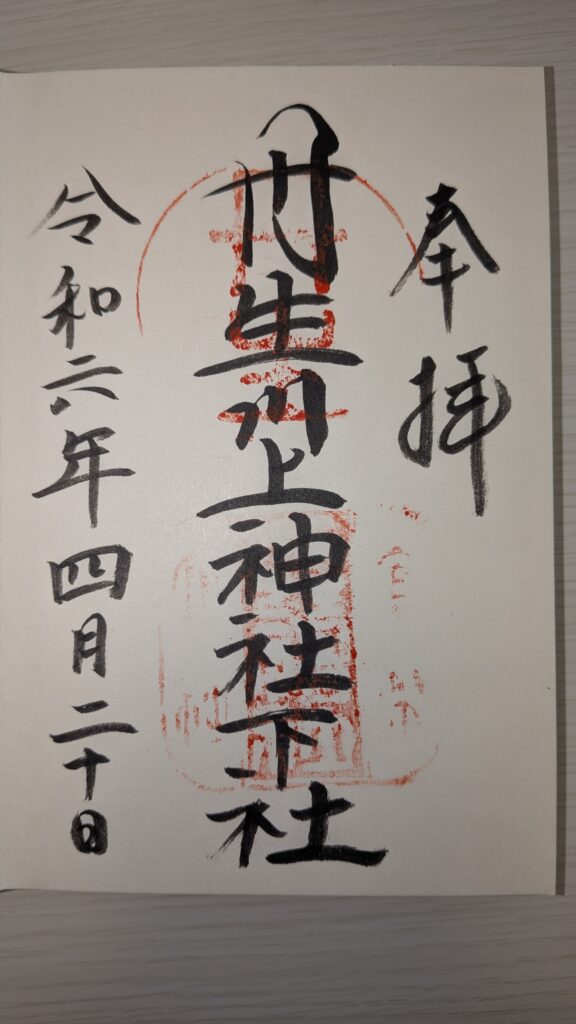 奉拝
丹生川上神社下社
令和六年四月二十日